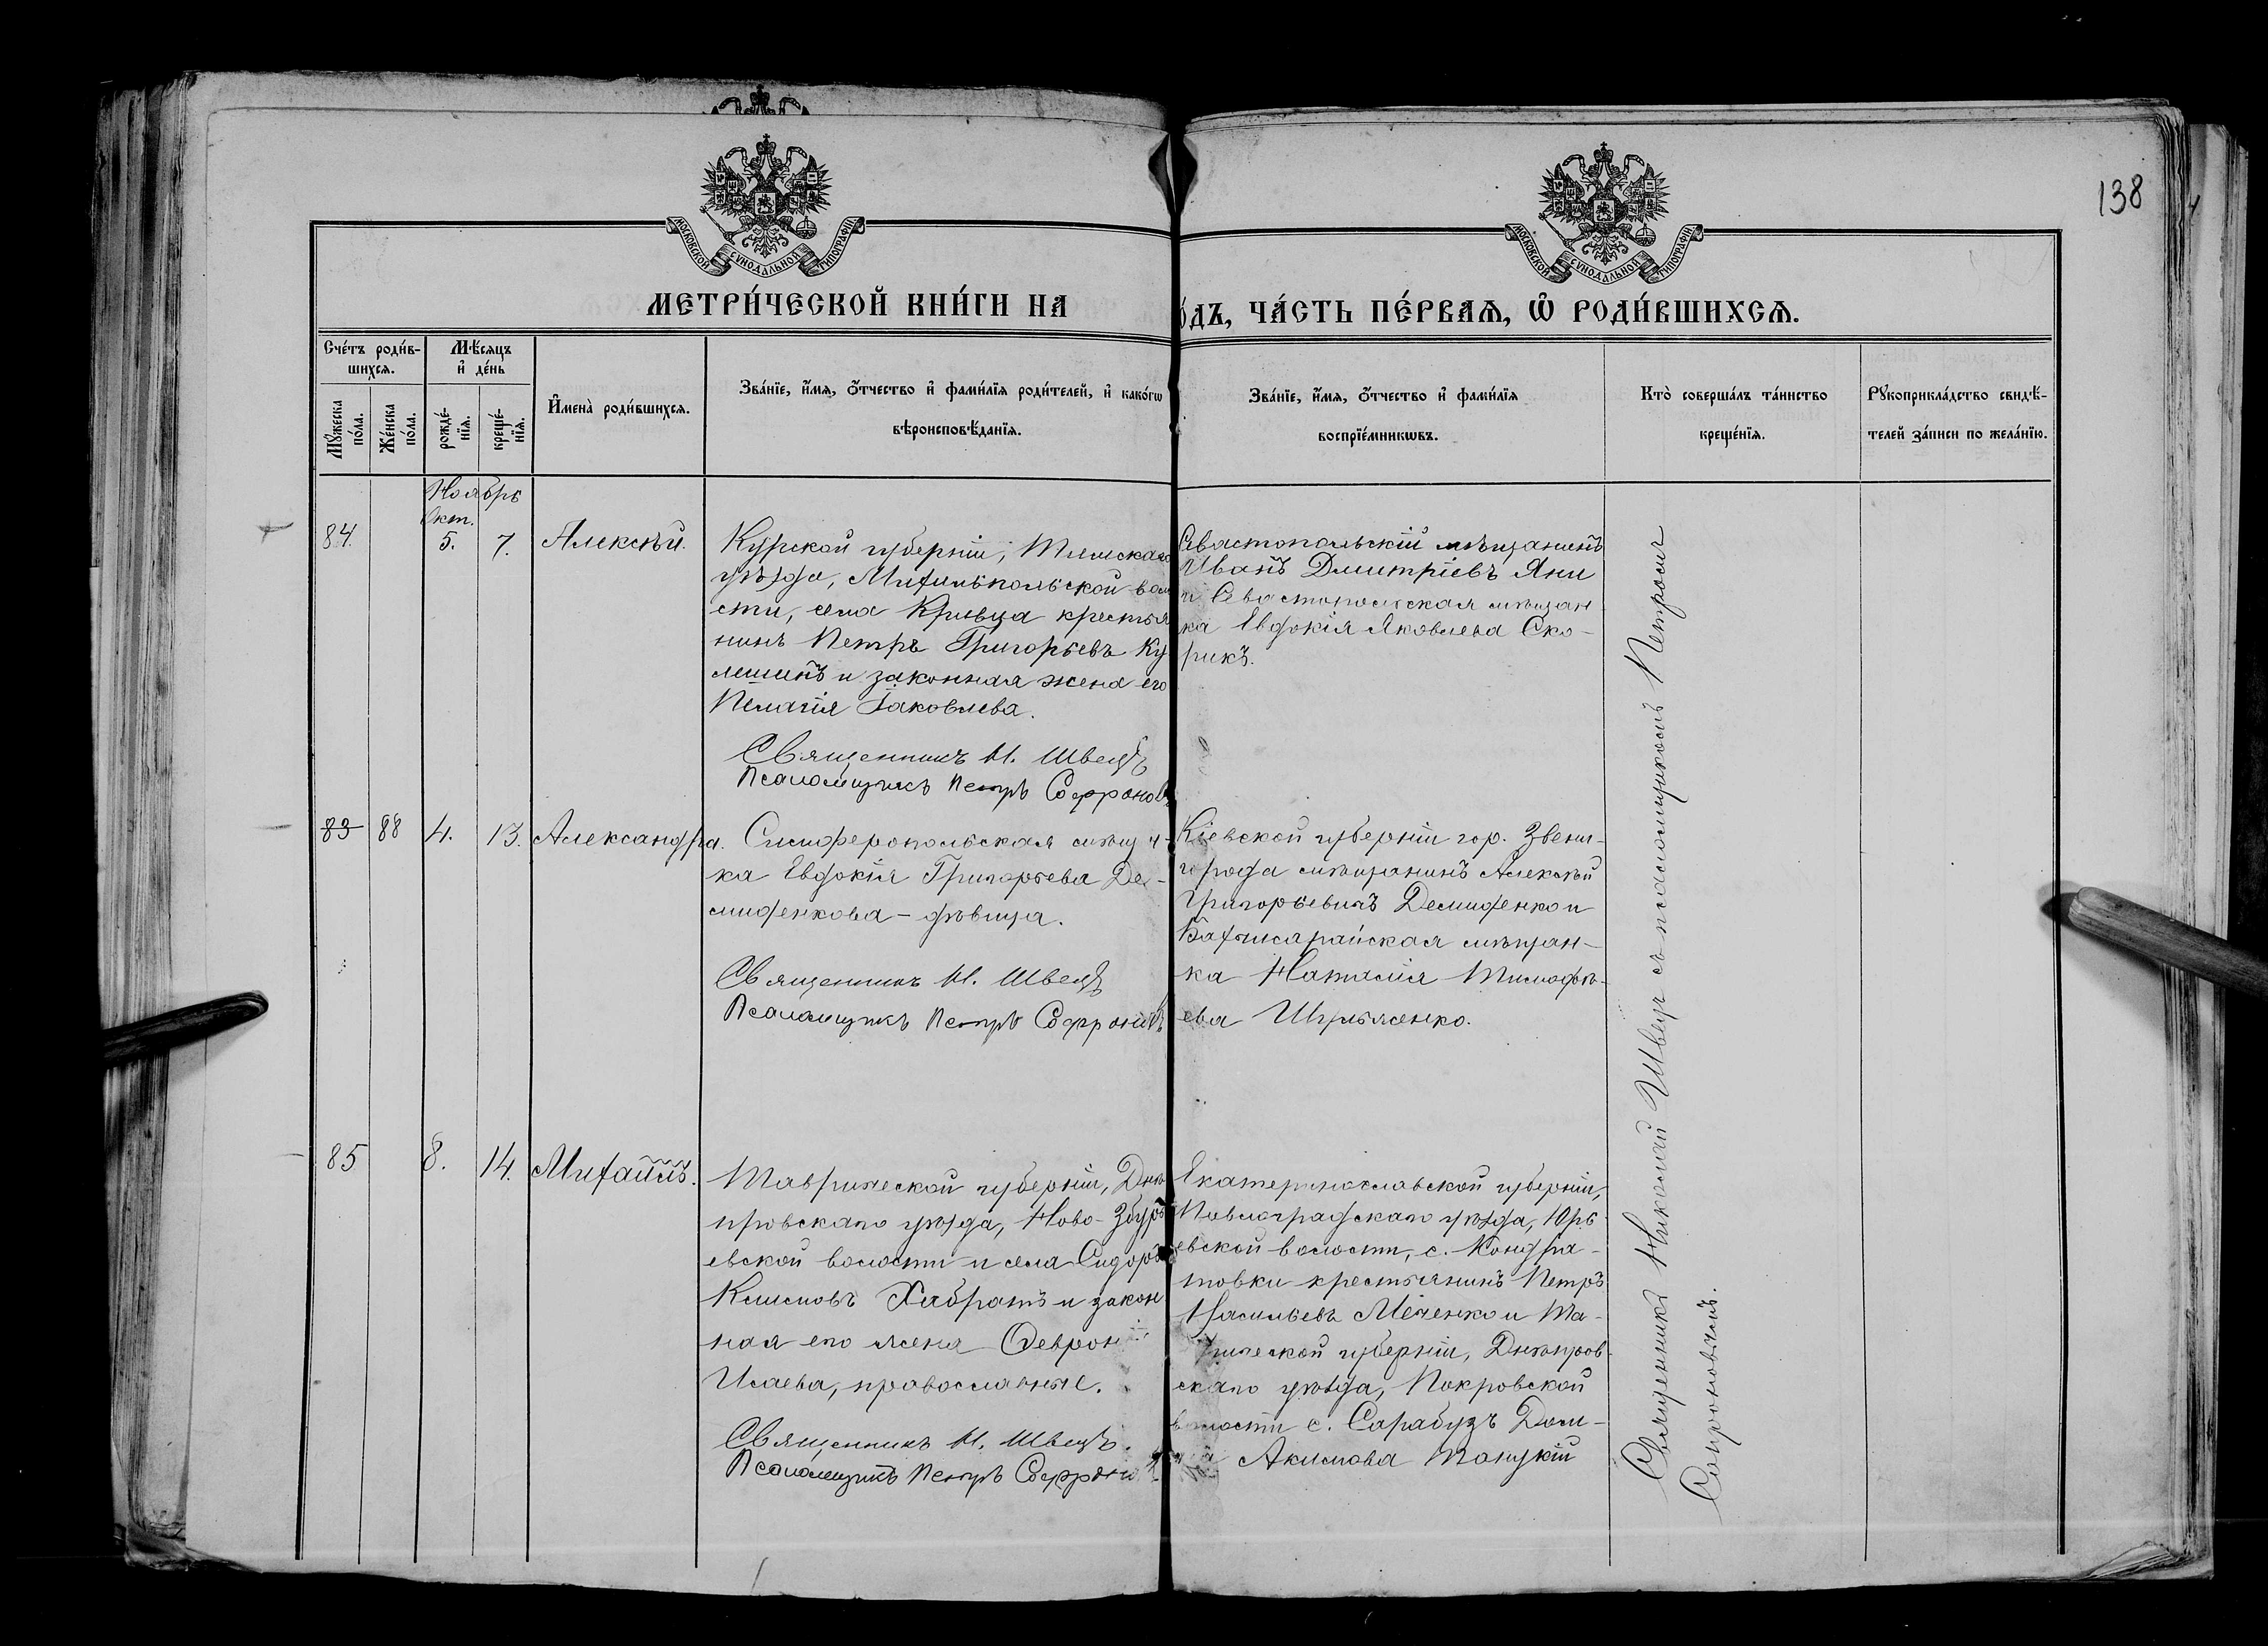 138
МОСКОВСКОЙ СѴНОДАЛЬНОЙ ТИПОГРАФІИ
МОСКОВСКОЙ СѴНОДАЛЬНОЙ ТИПОГРАФІИ
МЕТРИ́ЧЕСКОЙ КНИ́ГИ НА
О́ДЪ, ЧА́СТЬ ПЕ́РВАѦ, Ѡ҆ РОДИ́ВШИХСѦ.
Сче́тъ роди́в-
шихсѧ.
Мѣ́сѧцъ
и҆ де́нь
Мꙋ́жеска
по́ла.
Же́нска
по́ла.
рожде́-
нїѧ.
креще́-
нїѧ.
И҆мена̀ роди́вшихсѧ.
Зва́нїе, и҆́мѧ, ѻ҆́тчество и҆ фами́лїѧ роди́телей, и҆ како́гѡ
вѣроисповѣ́данїѧ.
Зва́нїе, и҆́мѧ, ѻ҆́тчество и҆ фами́лїѧ
воспрїе́мникѡвъ.
Кто̀ соверша́лъ та́инство
креще́нїѧ.
Рꙋкоприкла́дство свидѣ́-
телей за́писи по жела́нїю.
Ноябрь
Окт.
84. 5. 7. Алексѣй.
Курской губерніи, Тимскаго
уѣзда, вол
сти, села Кривца крестья
нинъ Петръ Григорьевъ Ку
лешинъ и законная жена его
Пелагія Іаковлева.
Священникъ Н. Швецъ
Псаломщикъ Петръ Софроновъ
Севастопольскій мѣщанинъ
Иванъ Дмитріевъ Яни
и Севастопольская мѣщан
ка Евдокія Яковлева Ско-
рикъ.
83 88 4. 13. Александра.
Симферопольская мѣщан-
ка Евдокія Григорьева Де-
миденкова - дѣвица.
Священникъ Н. Швецъ
Псаломщикъ Петръ Софроновъ
Кіевской губерніи гор. Звени-
города мѣщанинъ Алексѣй
Григорьевичъ Демиденко и
Бахчисарайская мѣщан-
ка Наталія Тимофѣ-
ева
85 8. 14. Михаилъ.
Таврической губерніи, Днѣ
провскаго уѣзда, Ново-Збурь
евской волости и села Сидоръ
Климовъ Хабратъ и закон
ная его жена Феврон
Исаева, православные.
Священникъ Н. Швецъ.
Псаломщикъ Петръ Софронов
Екатеринославской губерніи,
Павлоградскаго уѣзда, Юрь
евской волости, с. Кондра-
товки крестьянинъ Петръ
Васильевъ Меченко и Та-
врической губерніи, Днѣпров-
скаго уѣзда, Покровской
волости с. Сарабузъ Доми-
Акимова
Священникъ Николай Швецъ съ псаломщикомъ Петромъ
Сопроновымъ.